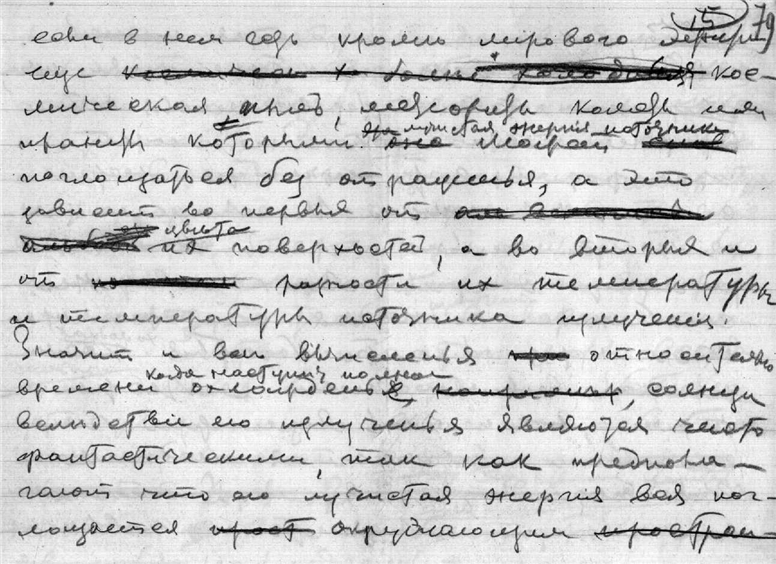 15 79
если в нем есть кроме мирового эфира
еще космическая
мическая пыль, метеориты кометы или
планеты которыми лучистая энергия источника может
поглощаться без отраженья, а это
зависит во первыя от
цвета их поверхностей, а во вторыя и
от разности их температуры
и температуры источника излученья.
Значит и все вычисленья относительно
времени когда наступит полное охлажденье солнца
вследствіе его излученья являются чисто
фантастическими, так как предпола-
гают что его лучистая энергія вся пог-
лощается окружающим